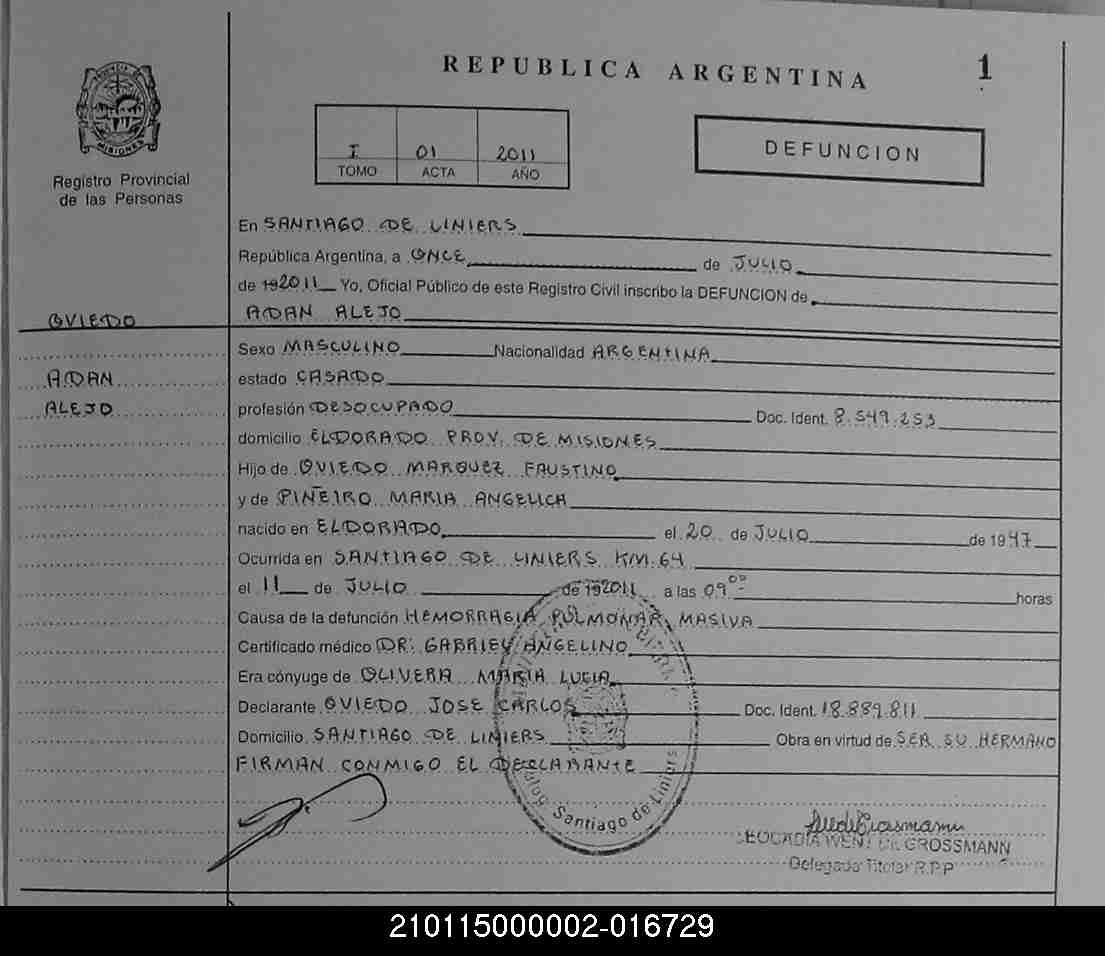 REPUBLICA ARGENTINA
1
PROVINCIA DE
MISIONES
Registro Provincial
de las Personas
I 01 2011
TOMO ACTA AÑO
DEFUNCION
En SANTIAGO DE LINIERS
República Argentina, a ONCE de JULIO
de 192011 Yo, Oficial Público de este Registro Civil inscribo la DEFUNCION de
OVIEDO
ADAN ALEJO
Sexo MASCULINO Nacionalidad ARGENTINA
ADAN
estado CASADO
ALEJO
profesión DESOCUPADO Doc. Ident. 8.549.253
domicilio ELDORADO PROV. DE MISIONES
Hijo de OVIEDO MARQUEZ FAUSTINO
y de PIÑEIRO MARIA ANGELICA
nacido en ELDORADO el 20 de JULIO de 1947
Ocurrida en SANTIAGO DE LINIERS KM.64
el 11 de JULIO de 192011 a las 09ºº horas
Causa de la defunción HEMORRAGIA PULMONAR MASIVA
Certificado médico DR. GABRIEL ANGELINO
Era cónyuge de OLIVERA MARIA LUCIA
Declarante OVIEDO JOSE CARLOS Doc. Ident. 18.889.811
Domicilio SANTIAGO DE LINIERS Obra en virtud de SER SU HERMANO
FIRMAN CONMIGO EL DECLARANTE
Santiago de Liniers
LEOCADIA WENT DE GROSSMANN
Delegada Titular R.P.P
210115000002-016729